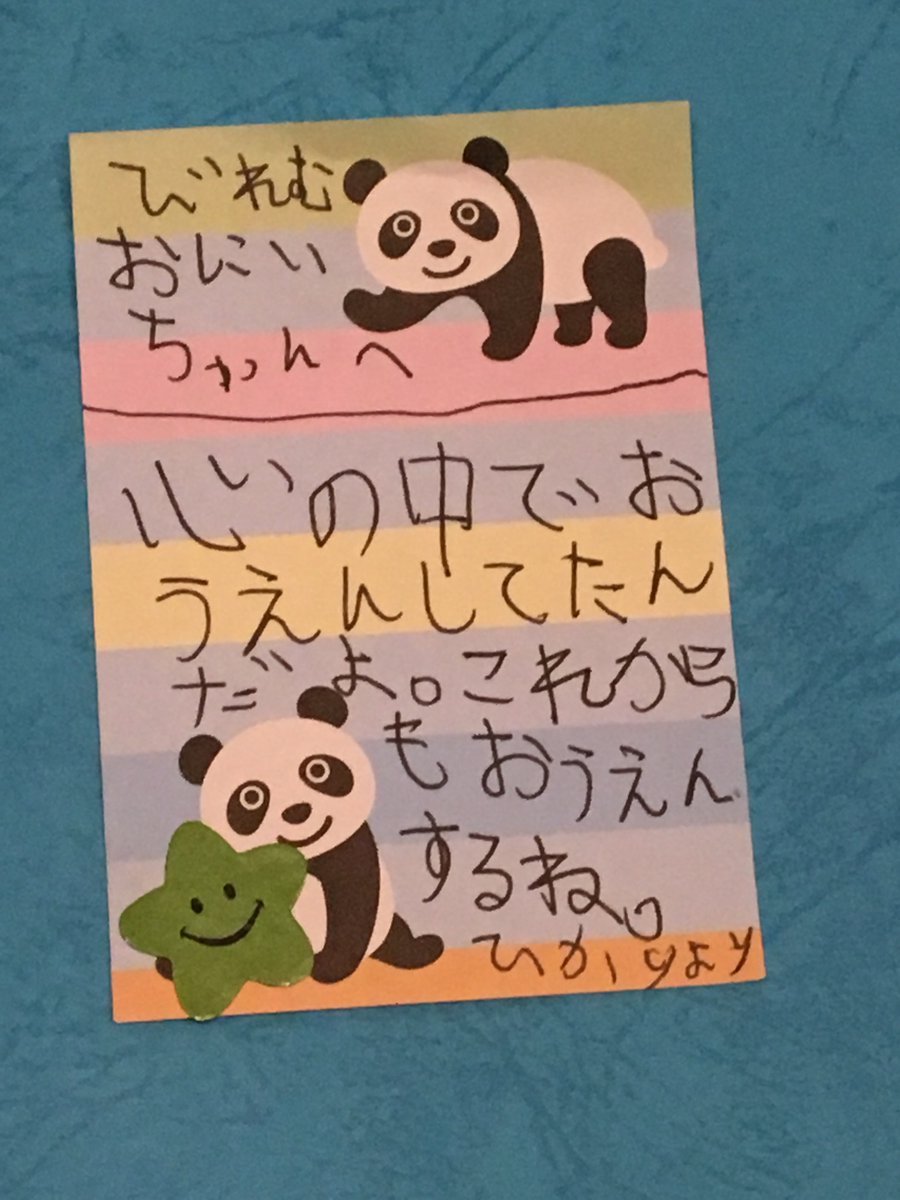 びれむ
おにい
ちゃんへ
心の中でお
うえんしてたん
だよ。これから
もおうえん
するね。
ひかりより